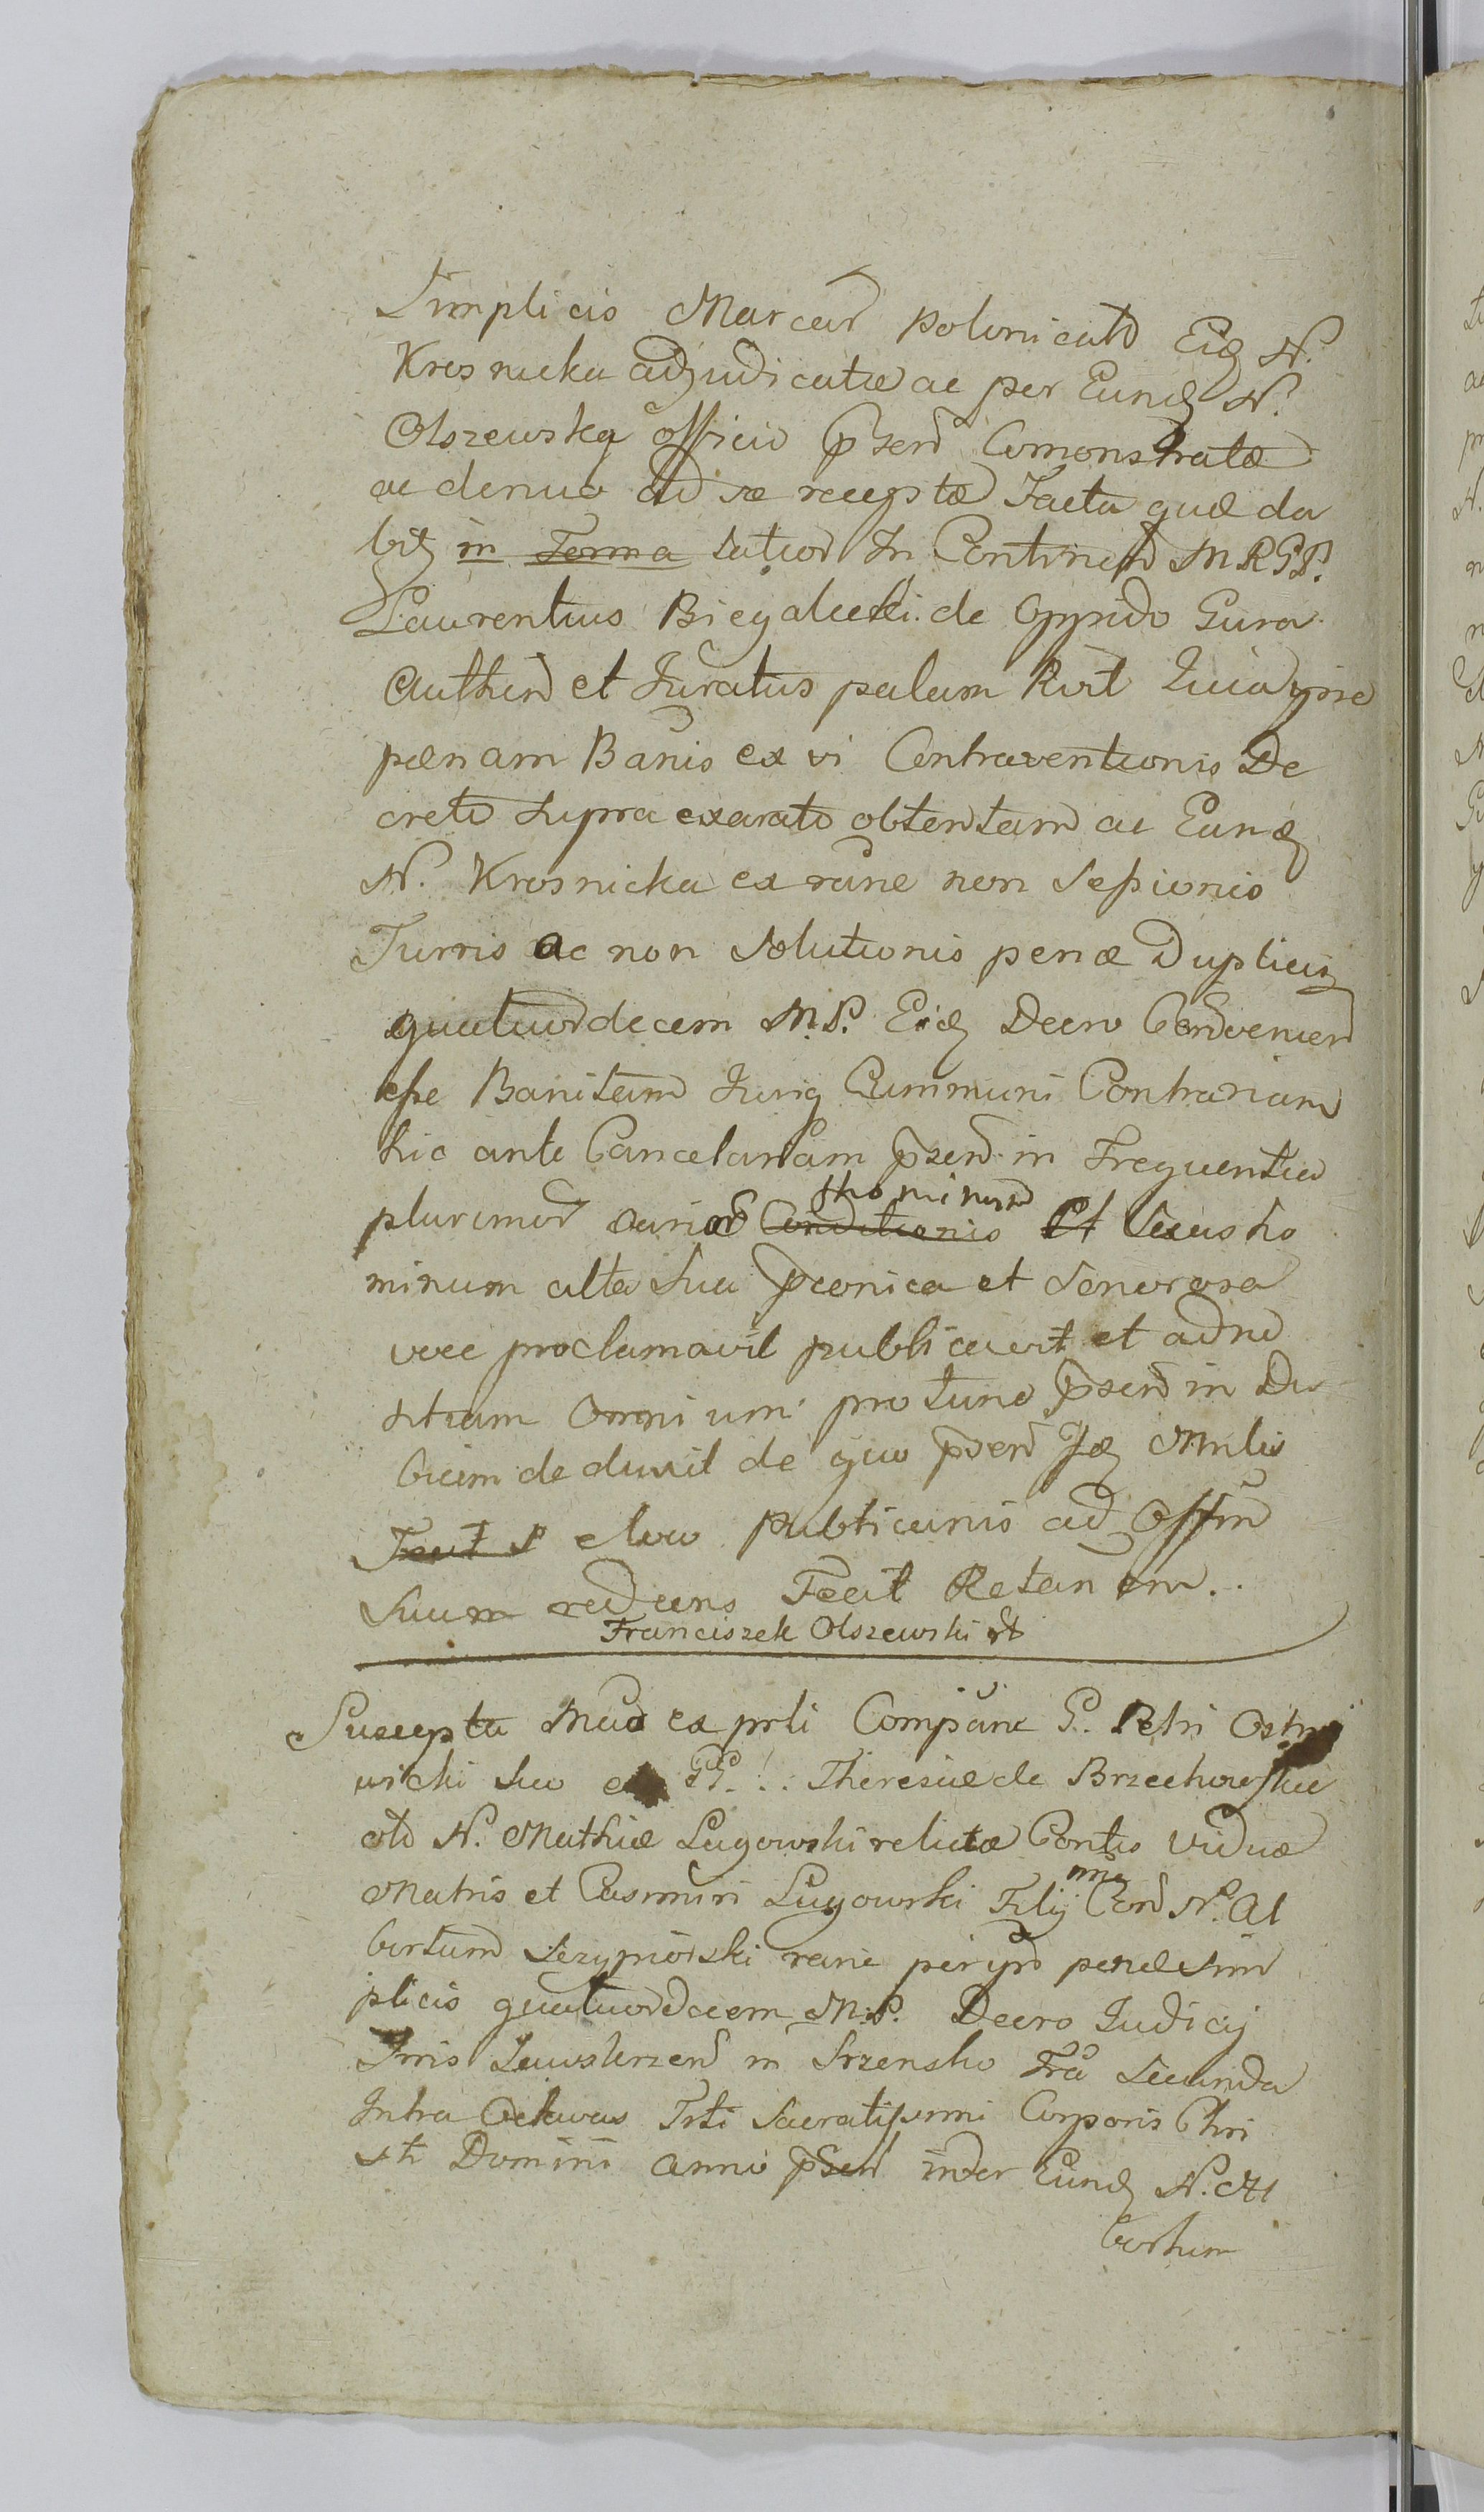 Simplicis Marcar Polonicał Eid N.
Krosnicka adjudicatæ ac per Eund N.
Olszewską officio pħsen Comonstratæ
ac denuo ad se receptæ Facta quæ da
bit in Forma Latior In Continen M R G P.
Laurentius Biegalecki de Oppido Gura
Authen et Juratus palam Rvit Quia ipse
pænam Banis ex vi Contraventionis De
creto supra exarato obtentam ac Eand
N. Krosnicka ex rãne non Sessionis
Turris ac non Solutionis penæ Duplicis
quatuordecem M.P. Eid Decro Convenien
esse Banitam Juriq Cummuni Contrariam
hic ante Cancelariam pħsen in Frequentia
plurimor variar Conditionis hominum Et Sexus ho
minum alta Sua pconica et Sonorosa
voce proclamavit publicavit et ad no
titiam Omnium pro tunc pħsen in Du
bium deduxit de quo pħsen Id Mnlis
Fecit P elvo publicanis ad Offm
Suum rediens Fecit Retanem.
Franciszek Olszewski
Suscepta Mnd ex prli Compãne G. Petri Ostro
wicki Suo et GG. Theresiæ de Brzechowskie
oli N. Mathiæ Lugowski relictæ Contis Viduæ
Matris et Casimiri Lugowski Filij mne Con N. Al
bertum Sczypiorski rãne per ip penæ Sim
plicis quatuordecem M.P. Decro Judicij
Trris Zawskrzen in Srzensko Fra Secunda
Intra Octavas Fsti Sacratissimi Corporis Chri
sti Domini anno pħsen inter Eund N. Al
bertum